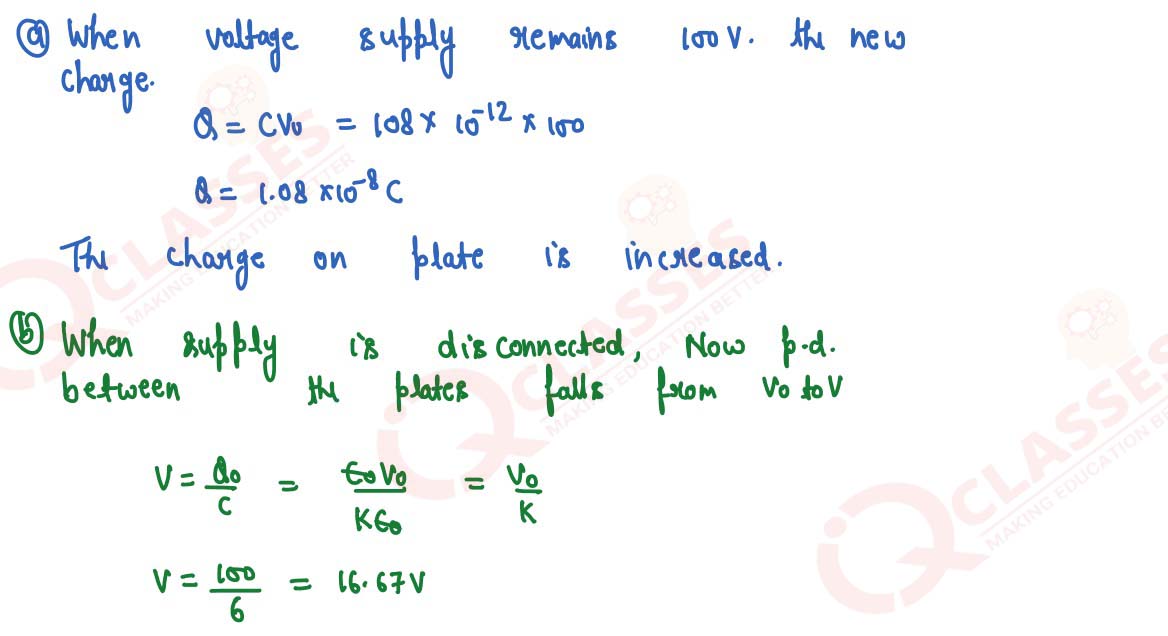 (a) When voltage supply remains 100 V. the new
charge.
Q = CV₀ = 108 × 10⁻¹² × 100
Q = 1.08 × 10⁻⁸ C
The charge on plate is increased.
(b) When supply is disconnected, Now p.d.
between the plates falls from V₀ to V
V = Q₀/C = C₀V₀/KC₀ = V₀/K
V = 100/6 = 16.67 V
CLASSES
MAKING EDUCATION BETTER
CLASSES
MAKING EDUCATION BETTER
CLASSES
MAKING EDUCATION BETTER